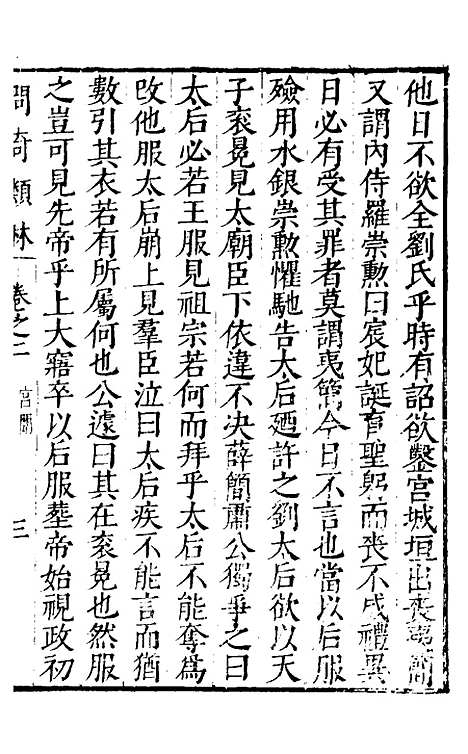 他日不欲全劉氏乎時有詔欲鑿宮城垣出喪夷簡
又謂內侍羅崇勲曰宸妃誕育聖躬而喪不成禮異
日必有受其罪者莫謂夷簡今日不言也當以后服
殮用水銀崇勲懼馳告太后廼許之劉太后欲以天
子衮冕見太廟臣下依違不决薛簡肅公獨爭之曰
太后必若王服見祖宗若何而拜乎太后不能奪爲
改他服太后崩上見羣臣泣曰太后疾不能言而猶
數引其衣若有所屬何也公遽曰其在衮冕也然服
之豈可見先帝乎上大寤卒以后服塟帝始視政初
問奇類林 卷之二 宮閫 三